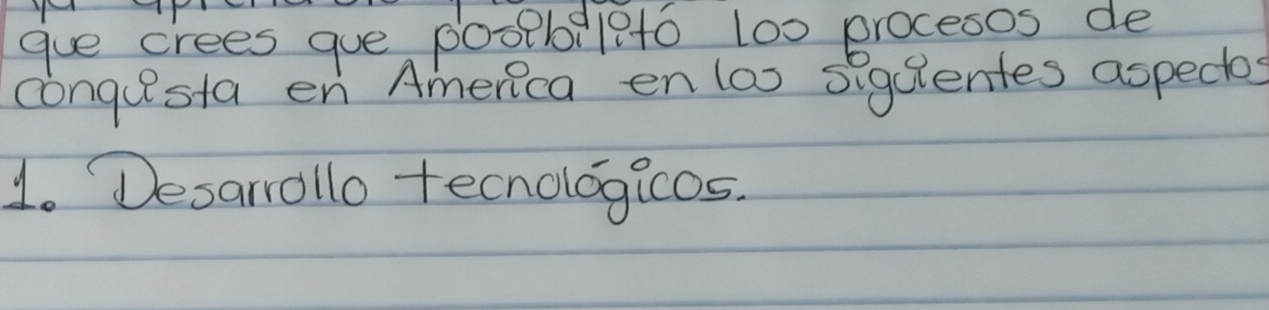 que crees que posibilitó los procesos de
conquista en America en los siguientes aspectos
1. Desarrollo tecnológicos.